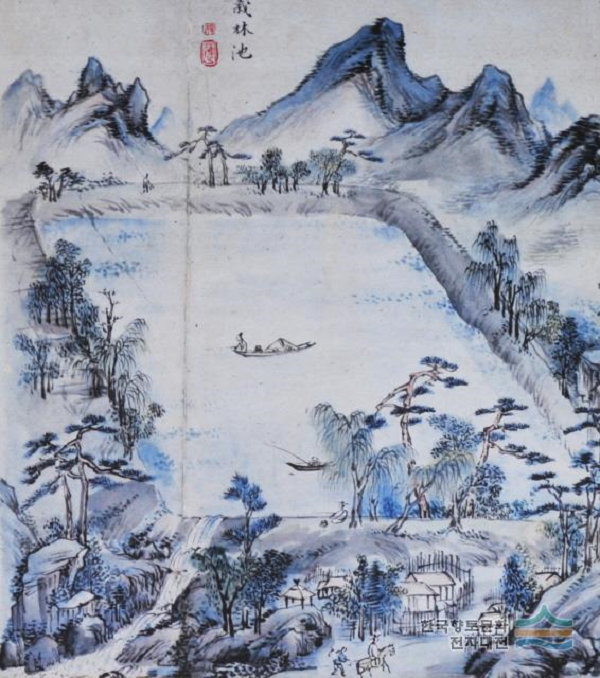 義林池
한국향토문화
전자대전